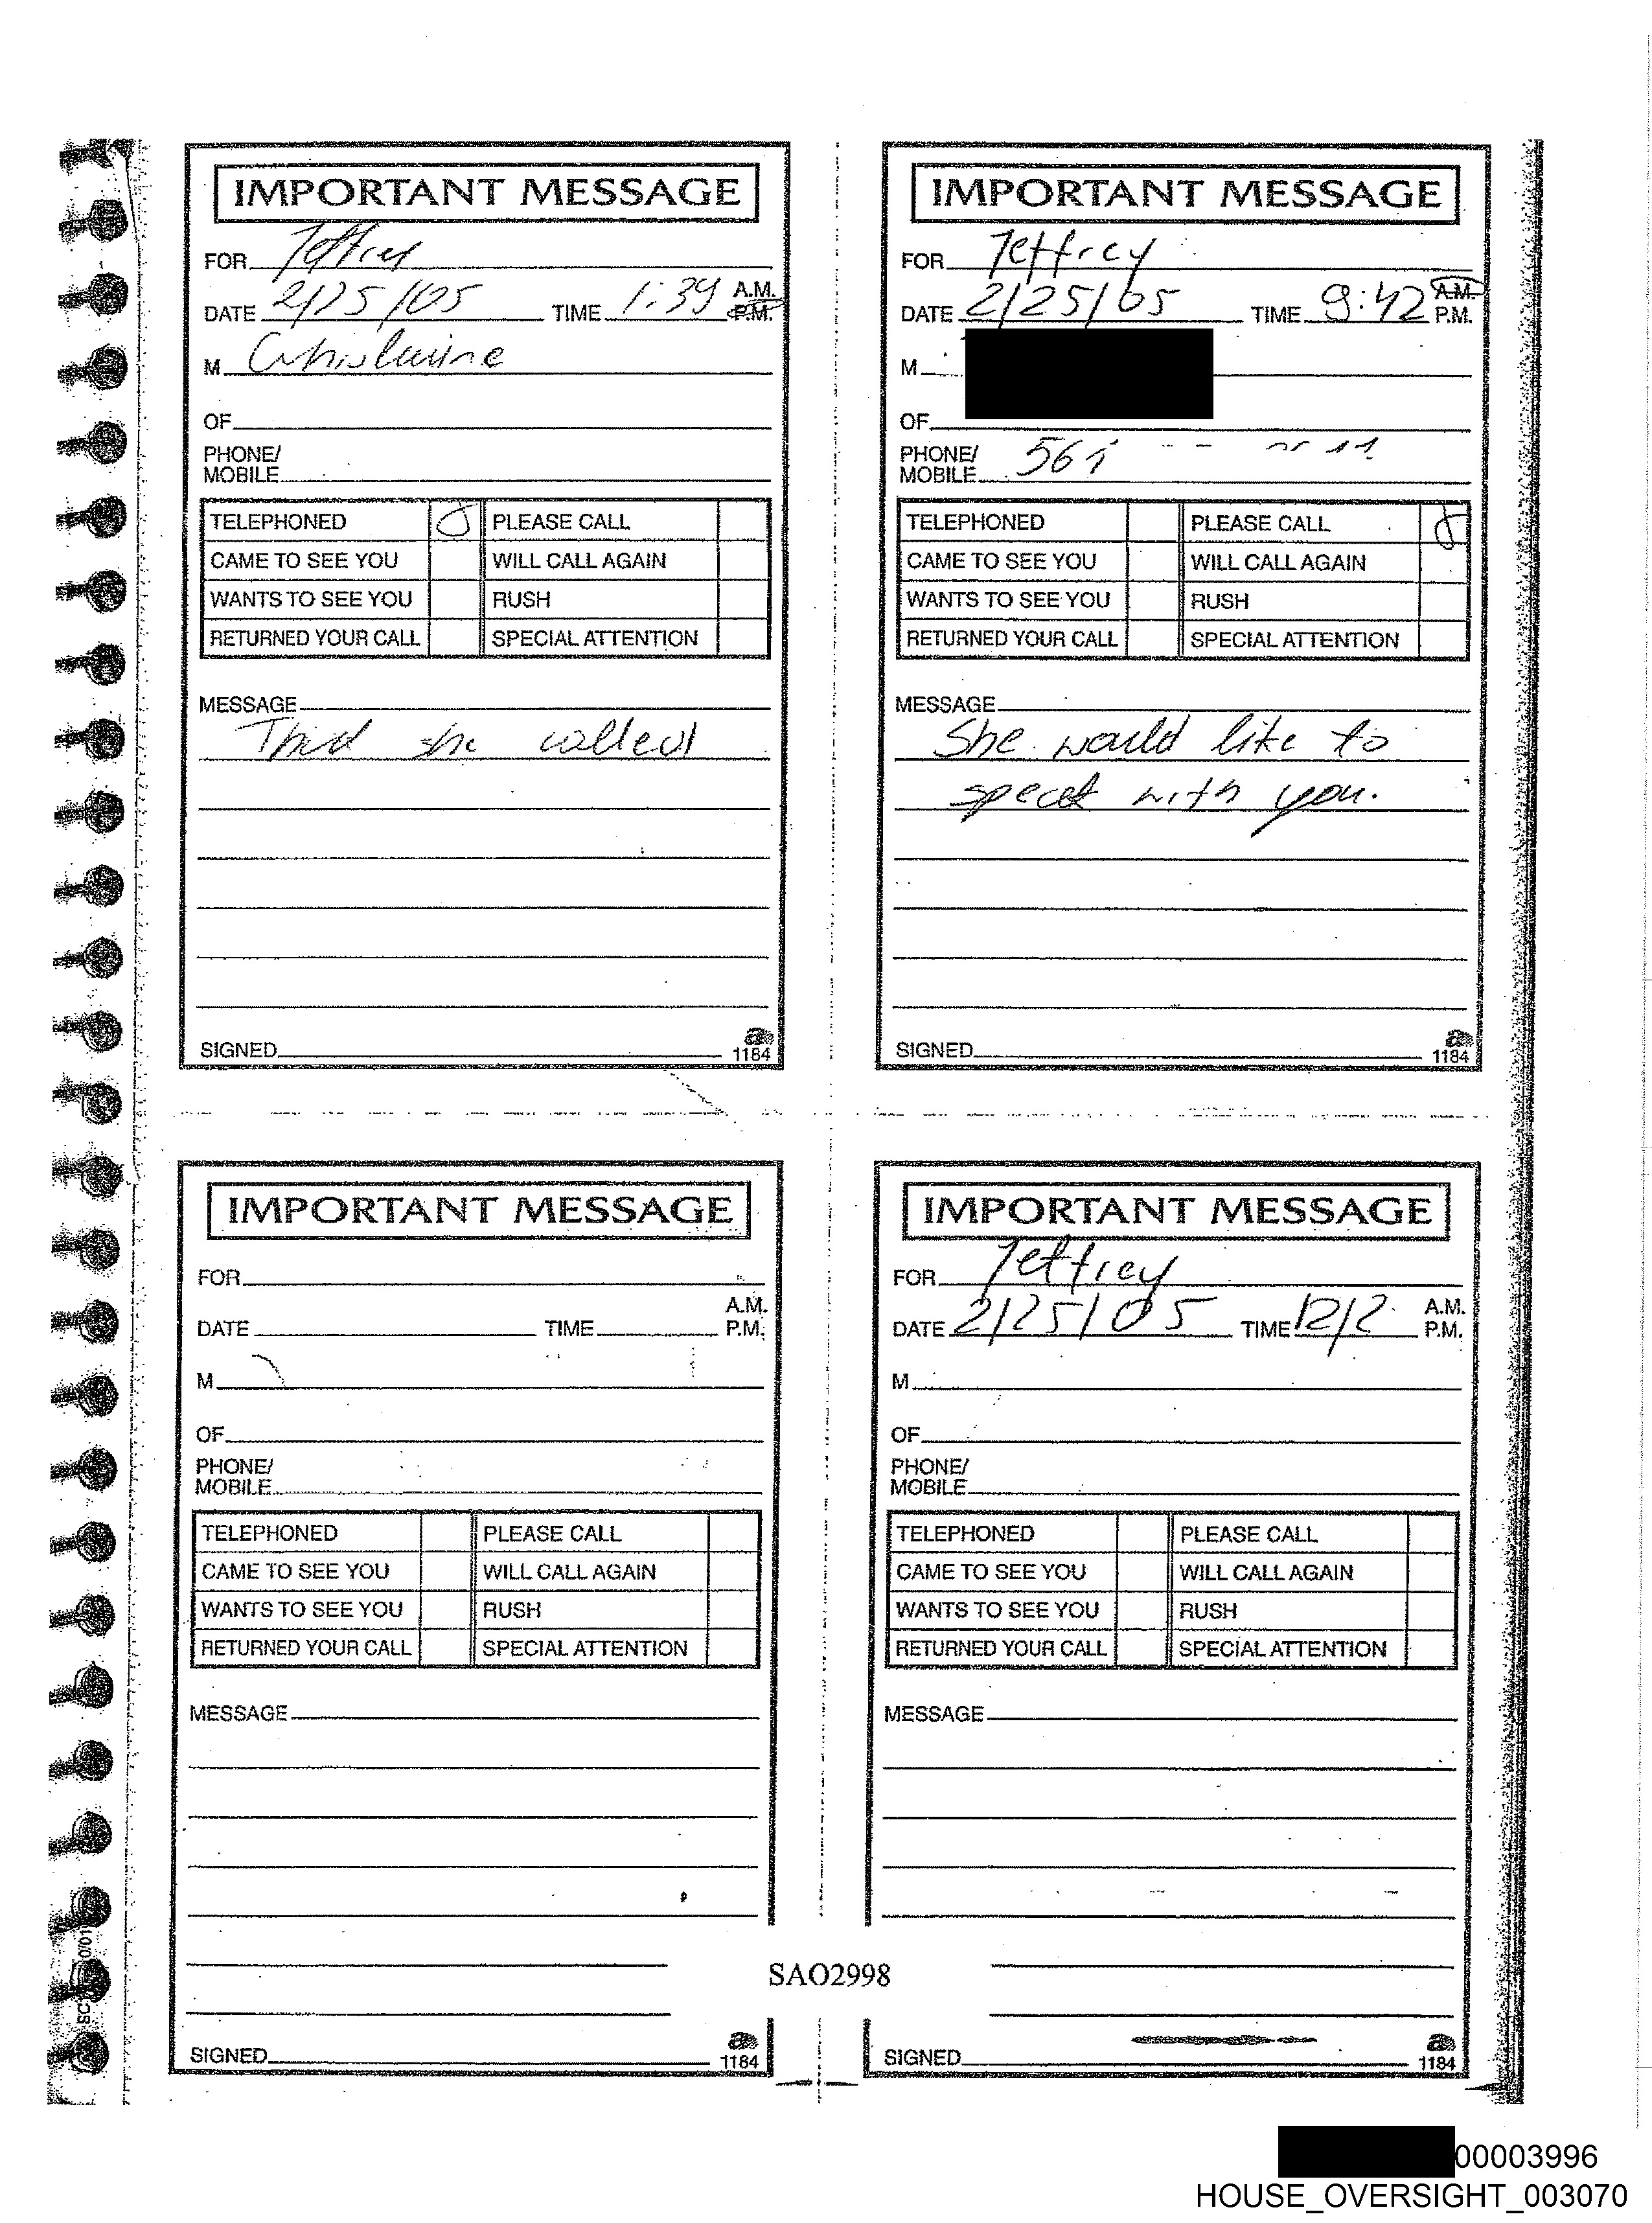 IMPORTANT MESSAGE
FOR Jeffrey
DATE 2/25/05 TIME 1:39 A.M.
P.M.
M Ghislaine
OF
PHONE/
MOBILE
TELEPHONED PLEASE CALL
CAME TO SEE YOU WILL CALL AGAIN
WANTS TO SEE YOU RUSH
RETURNED YOUR CALL SPECIAL ATTENTION
MESSAGE
That she called
SIGNED
1184
IMPORTANT MESSAGE
FOR Jeffrey
DATE 2/25/05 TIME 9:42 A.M.
P.M.
M
OF
PHONE/
MOBILE 561
TELEPHONED PLEASE CALL
CAME TO SEE YOU WILL CALL AGAIN
WANTS TO SEE YOU RUSH
RETURNED YOUR CALL SPECIAL ATTENTION
MESSAGE
She would like to
speak with you.
SIGNED
1184
IMPORTANT MESSAGE
FOR
A.M.
DATE TIME P.M.
M
OF
PHONE/
MOBILE
TELEPHONED PLEASE CALL
CAME TO SEE YOU WILL CALL AGAIN
WANTS TO SEE YOU RUSH
RETURNED YOUR CALL SPECIAL ATTENTION
MESSAGE
SIGNED
1184
IMPORTANT MESSAGE
FOR Jeffrey
A.M.
DATE 2/25/05 TIME 12/2 P.M.
M
OF
PHONE/
MOBILE
TELEPHONED PLEASE CALL
CAME TO SEE YOU WILL CALL AGAIN
WANTS TO SEE YOU RUSH
RETURNED YOUR CALL SPECIAL ATTENTION
MESSAGE
SIGNED
1184
SAO2998
00003996
HOUSE_OVERSIGHT_003070